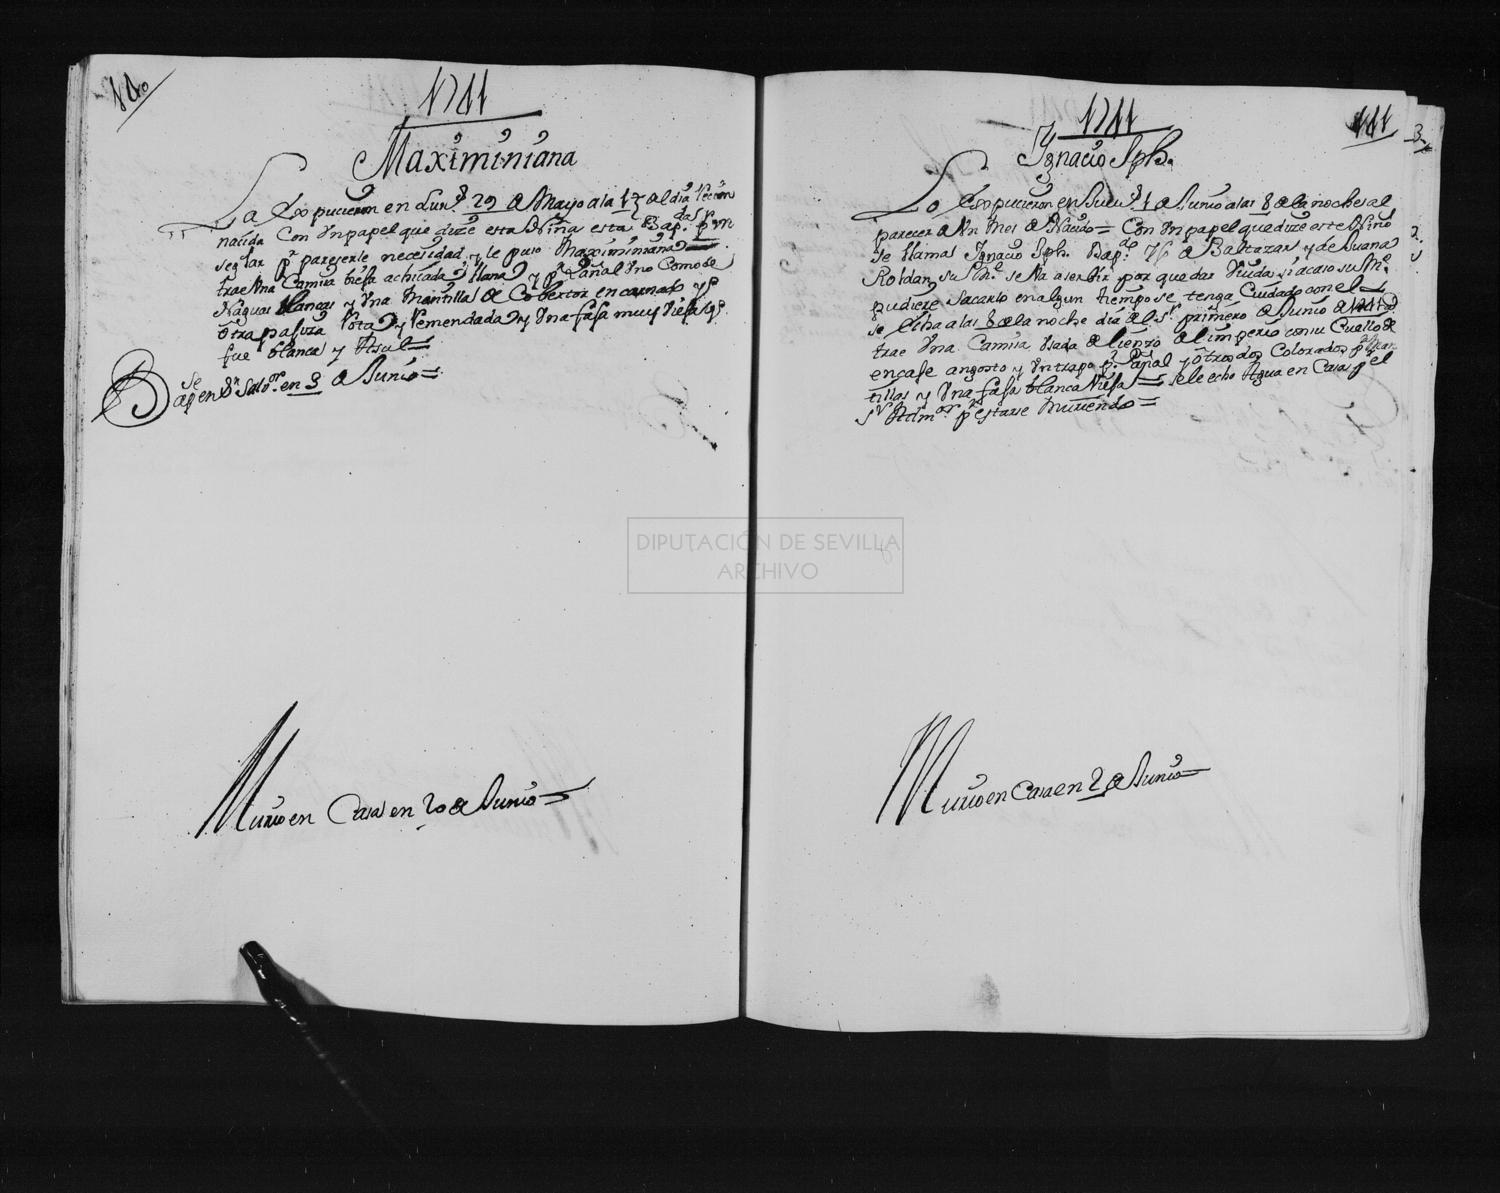 140
1711
Maximiniana
La Expucieron en Lun.s 29 de Mayo a la 1 del dia Recien
nacida Con Un papel que dize esta Niña esta Bap.da p.r un
seglar p.r pareserle necesidad y le puso Maximiniana
trae Una Camisa biexa achicada llana y p.r pañal Uno Como de
Naguas blancas y Una Mantilla de Cobertor encarnado y
otra pajiza Rota y Remendada y Una faxa muy Viexa q.
fue blanca y Azul=
se
Bap en S.n Salv.or en 3 de Junio=
Murio en Casa en 20 de Junio=
1711
141
Ygnacio Jph.
Lo Expucieron en 1 de Junio a las 8 de la noche al
parecer de Un Mes de Nacido= Con Un papel que dize este Niño
se llama Ygnacio Jph. Bap.do de Baltazar y de Juana
Roldan su M.e se Va a servir por quedar Viuda si acaso su M.e
pudiere Sacarlo en algun tiempo se tenga Cuidado con el
se Echa a las 8 de la noche dia de primero de Junio de 1711
trae Una Camisa Usada de lienzo del imperio con su Cuello de
encaje angosto y Un trapo p.r Pañal y otros dos Colorados p.r Man
tillas y Una faxa blanca Viexa= se le echo Agua en Casa p.r el
S.r Adm.or p.r estarse Muriendo=
Murio en Casa en 2 de Junio=
DIPUTACIÓN DE SEVILLA
ARCHIVO